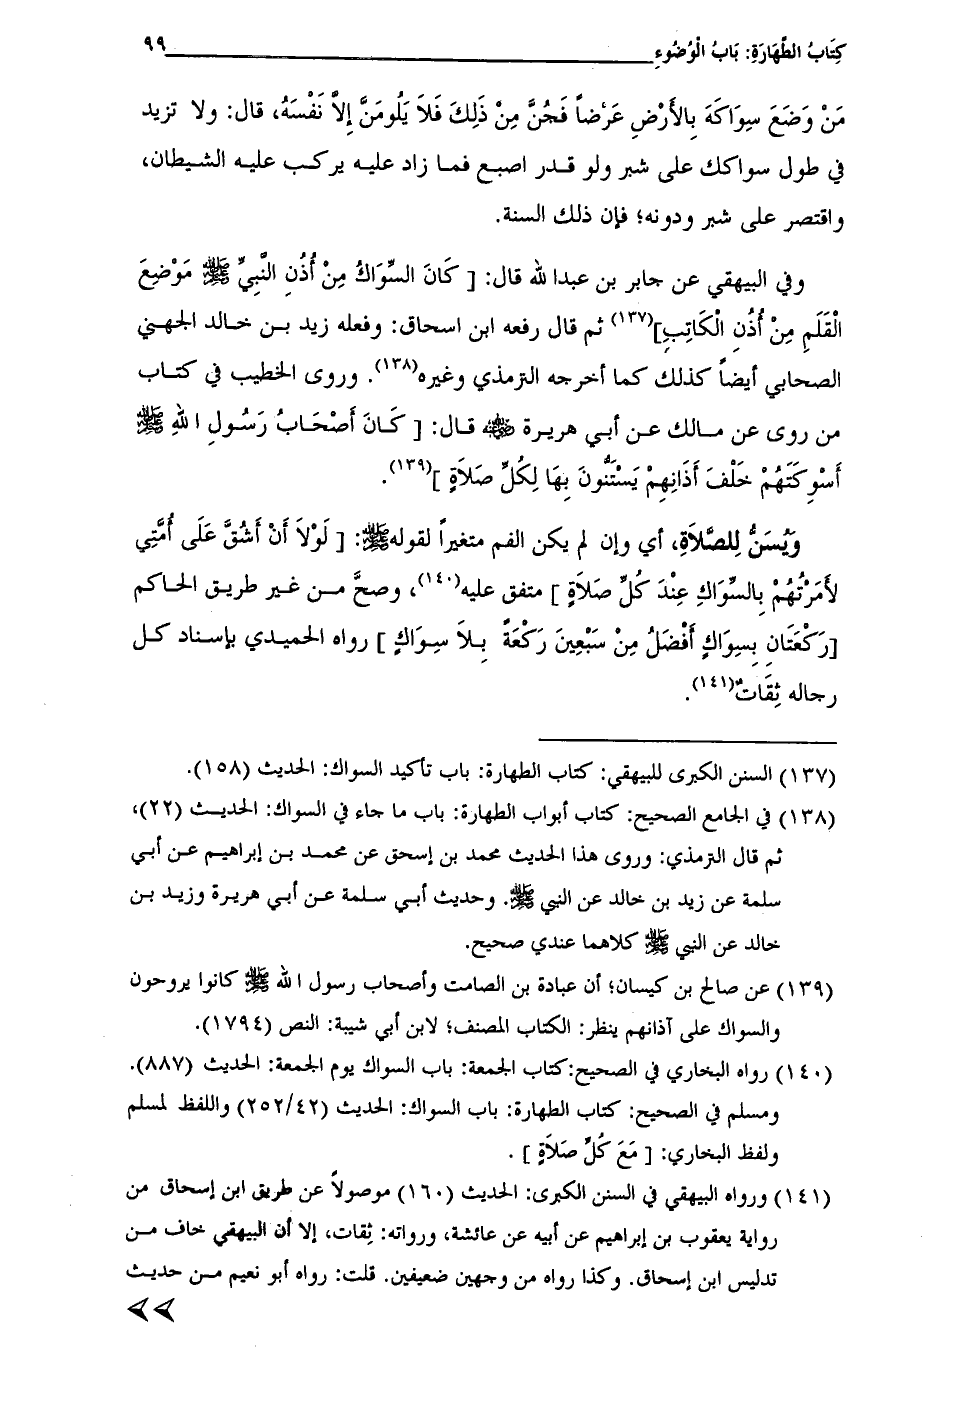 كِتَابُ الطَّهَارَةِ: بَابُ الْوُضُوءِ ٩٩
مَنْ وَضَعَ سِوَاكَهُ بِالأَرْضِ عَرْضاً فَجُنَّ مِنْ ذَلِكَ فَلاَ يَلُومَنَّ إِلاَّ نَفْسَهُ، قال: ولا تزيد
في طول سواكك على شبر ولو قدر اصبع فما زاد عليه يركب عليه الشيطان،
واقتصر على شبر ودونه؛ فإن ذلك السنة.
وفي البيهقي عن جابر بن عبدالله قال: [ كَانَ السِّوَاكُ مِنْ أُذُنِ النَّبِيِّ ﷺ مَوْضِعَ
الْقَلَمِ مِنْ أُذُنِ الْكَاتِبِ](١٣٧) ثم قال رفعه ابن اسحاق: وفعله زيد بن خالد الجهني
الصحابي أيضاً كذلك كما أخرجه الترمذي وغيره(١٣٨). وروى الخطيب في كتاب
من روى عن مالك عن أبي هريرة ﵁ قال: [ كَانَ أَصْحَابُ رَسُولِ اللهِ ﷺ
أَسْوِكَتَهُمْ خَلْفَ أَذَانِهِمْ يَسْتَنُّونَ بِهَا لِكُلِّ صَلاَةٍ ](١٣٩).
وَيُسَنُّ لِلصَّلاَةِ، أي وإن لم يكن الفم متغيراً لقوله ﷺ: [ لَوْلاَ أَنْ أَشُقَّ عَلَى أُمَّتِي
لأَمَرْتُهُمْ بِالسِّوَاكِ عِنْدَ كُلِّ صَلاَةٍ ] متفق عليه(١٤٠)، وصحَّ من غير طريق الحاكم
[رَكْعَتَانِ بِسِوَاكٍ أَفْضَلُ مِنْ سَبْعِينَ رَكْعَةً بِلاَ سِوَاكٍ ] رواه الحميدي بإسناد كل
رجاله ثِقَاتٌ(١٤١).
(١٣٧) السنن الكبرى للبيهقي: كتاب الطهارة: باب تأكيد السواك: الحديث (١٥٨).
(١٣٨) في الجامع الصحيح: كتاب أبواب الطهارة: باب ما جاء في السواك: الحديث (٢٢)،
ثم قال الترمذي: وروى هذا الحديث محمد بن إسحق عن محمد بن إبراهيم عن أبي
سلمة عن زيد بن خالد عن النبي ﷺ. وحديث أبي سلمة عن أبي هريرة وزيد بن
خالد عن النبي ﷺ كلاهما عندي صحيح.
(١٣٩) عن صالح بن كيسان؛ أن عبادة بن الصامت وأصحاب رسول الله ﷺ كانوا يروحون
والسواك على آذانهم ينظر: الكتاب المصنف؛ لابن أبي شيبة: النص (١٧٩٤).
(١٤٠) رواه البخاري في الصحيح:كتاب الجمعة: باب السواك يوم الجمعة: الحديث (٨٨٧).
ومسلم في الصحيح: كتاب الطهارة: باب السواك: الحديث (٢٥٢/٤٢) واللفظ لمسلم
ولفظ البخاري: [ مَعَ كُلِّ صَلاَةٍ ] .
(١٤١) ورواه البيهقي في السنن الكبرى: الحديث (١٦٠) موصولاً عن طريق ابن إسحاق من
رواية يعقوب بن إبراهيم عن أبيه عن عائشة، ورواته: ثِقات، إلا أن البيهقي خاف من
تدليس ابن إسحاق. وكذا رواه من وجهين ضعيفين. قلت: رواه أبو نعيم من حديث